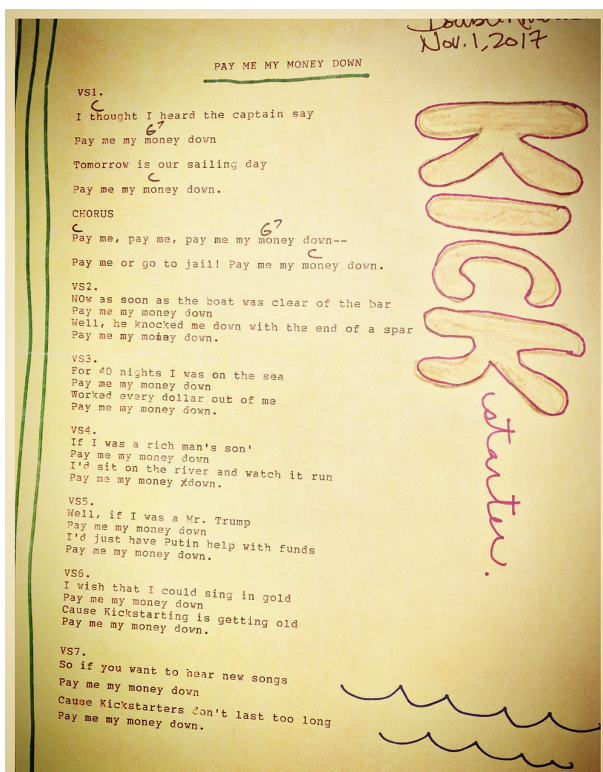 Nov. 1, 2017
PAY ME MY MONEY DOWN
VS1.
C
I thought I heard the captain say
G7
Pay me my money down
Tomorrow is our sailing day
C
Pay me my money down.
CHORUS
C G7
Pay me, pay me, pay me my money down--
C
Pay me or go to jail! Pay me my money down.
VS2.
NOw as soon as the boat was clear of the bar
Pay me my money down
Well, he knocked me down with the end of a spar
Pay me my money down.
VS3.
For 40 nights I was on the sea
Pay me my money down
Worked every dollar out of me
Pay me my money down.
VS4.
If I was a rich man's son'
Pay me my money down
I'd sit on the river and watch it run
Pay me my money down.
VS5.
Well, if I was a Mr. Trump
Pay me my money down
I'd just have Putin help with funds
Pay me my money down.
VS6.
I wish that I could sing in gold
Pay me my money down
Cause Kickstarting is getting old
Pay me my money down.
VS7.
So if you want to hear new songs
Pay me my money down
Cause Kickstarters don't last too long
Pay me my money down.
KICK
starter.